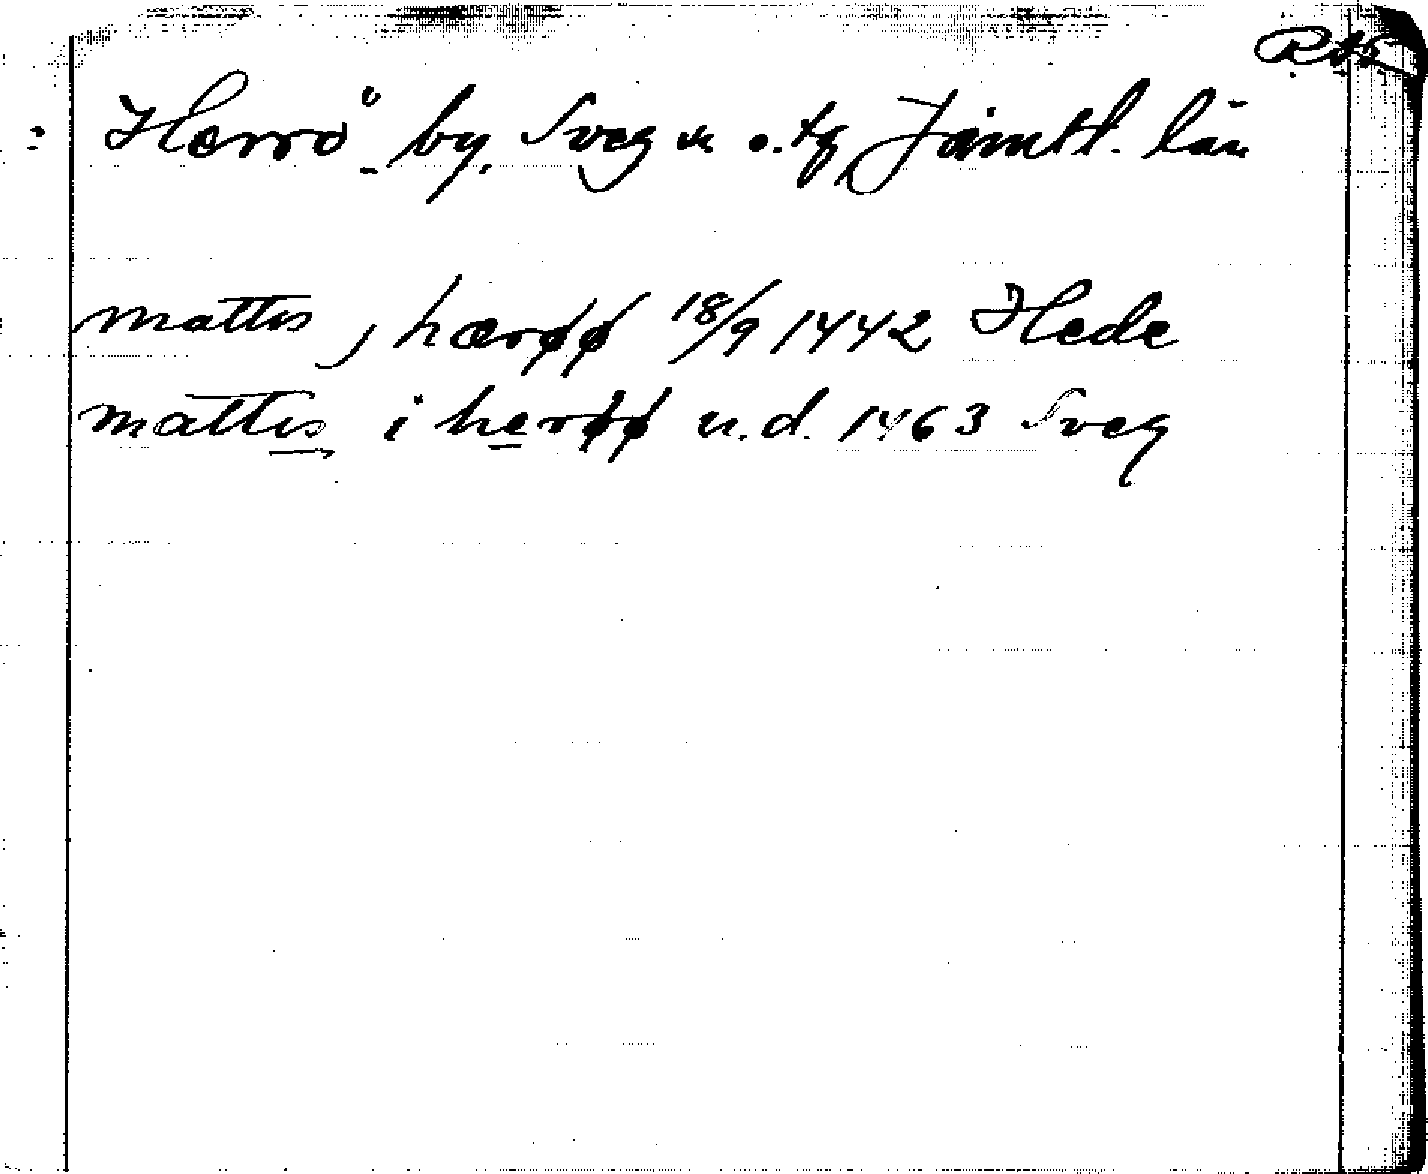 Härrö by. Sveg sn o. tg Jämtl. län
mattis j hærøø 18/9 1442 Hede
mattis i herøø u.d. 1463 Sveg